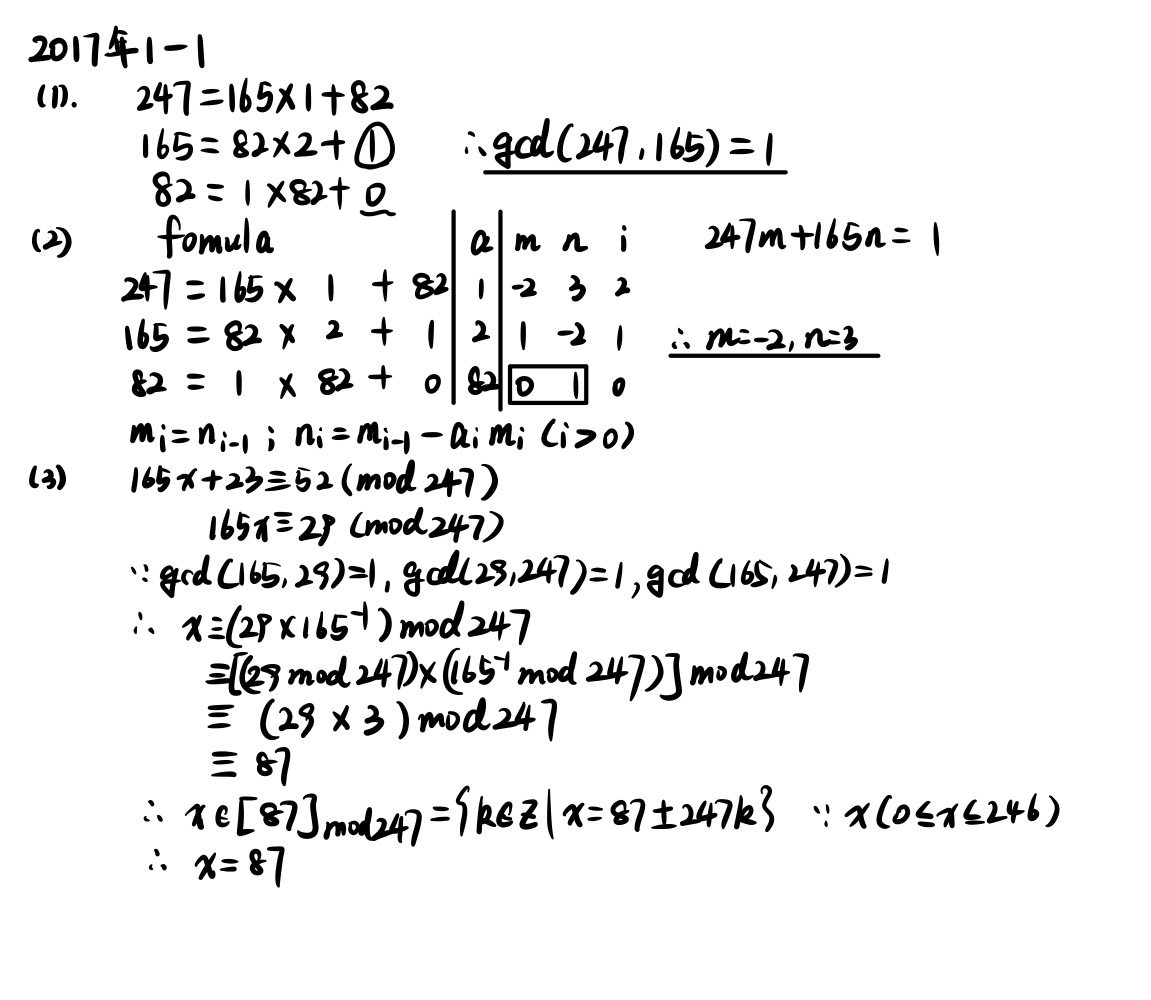 2017年1-1
(1). 247=165×1+82
165=82×2+1 ∴gcd(247,165)=1
82=1×82+0
(2) fomula a m n i 247m+165n=1
247=165×1+82 1 -2 3 2
165=82×2+1 2 1 -2 1 ∴ m=-2, n=3
82=1×82+0 82 0 1 0
mᵢ=nᵢ₋₁ ; nᵢ=mᵢ₋₁-aᵢmᵢ (i>0)
(3) 165x+23≡52(mod 247)
165x≡29 (mod 247)
∵ gcd(165,29)=1, gcd(29,247)=1, gcd(165,247)=1
∴ x≡(29×165⁻¹)mod 247
≡[(29 mod 247)×(165⁻¹ mod 247)] mod 247
≡ (29×3) mod 247
≡ 87
∴ x∈[87]mod 247={k∈Z|x=87±247k} ∵ x(0≤x≤246)
∴ x=87